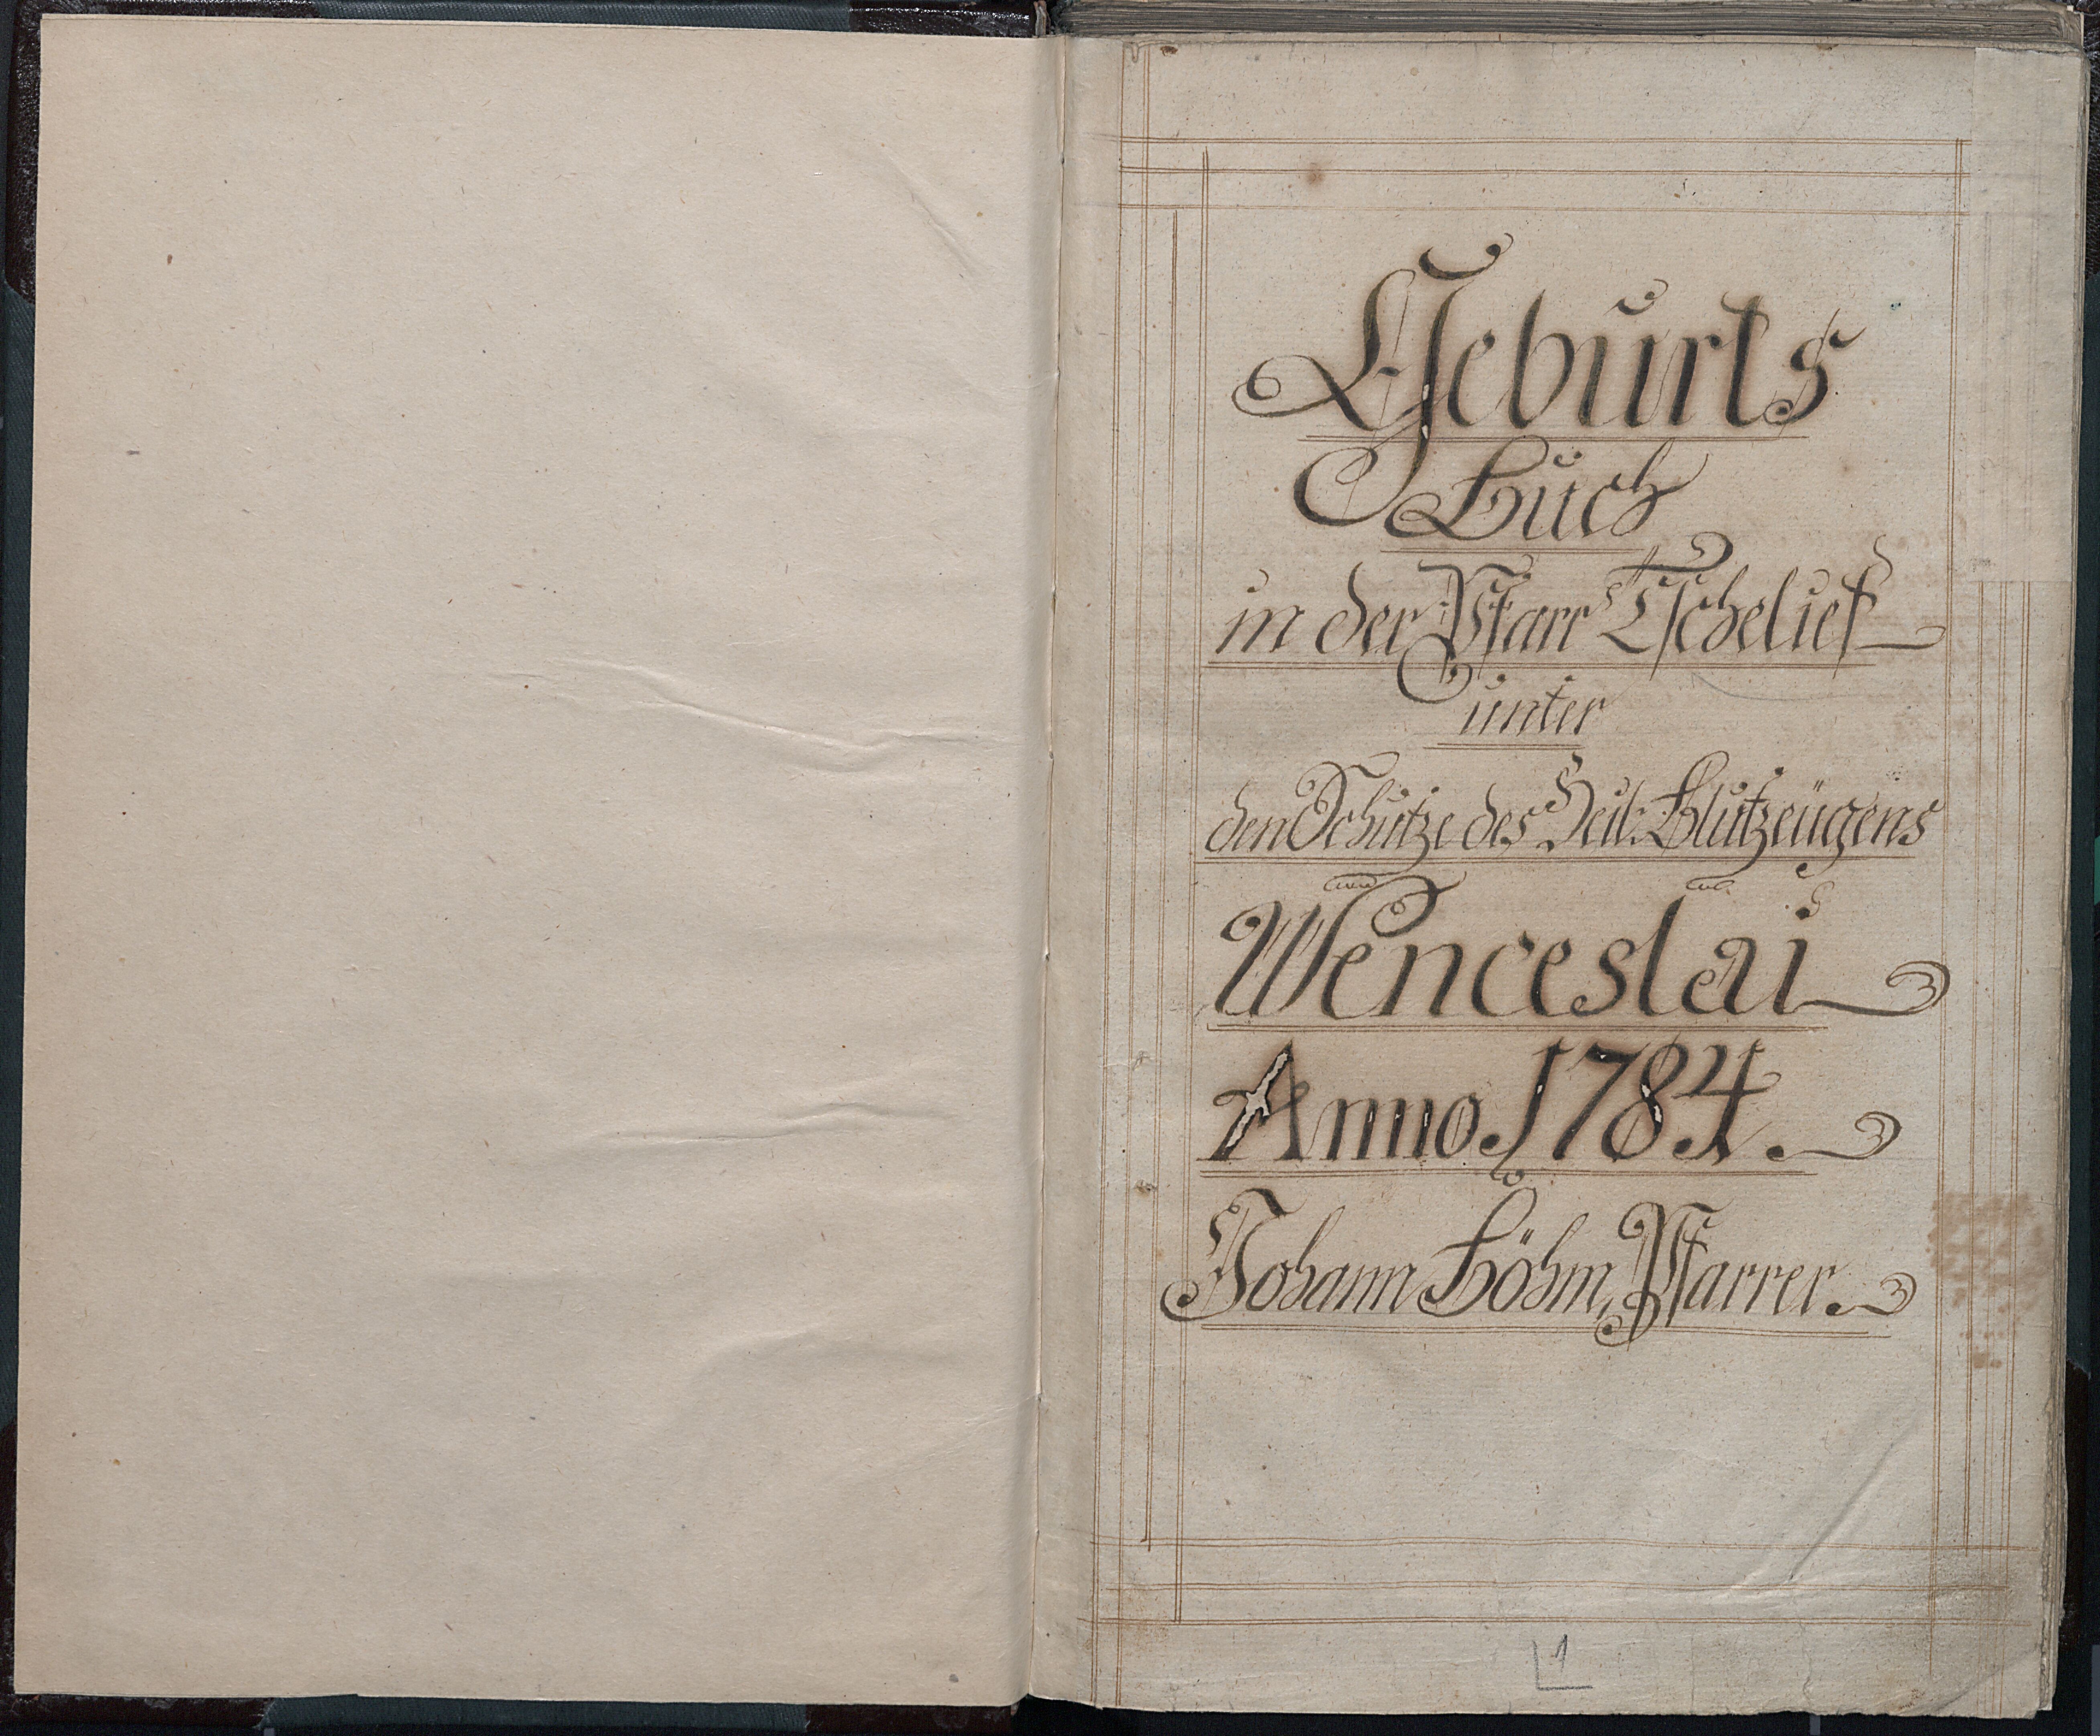 Geburts
Buch
in der Pfarr Tschelief
unter
den Schutze des Heil: Blutzeugens
Wenceslai
Anno 1784.
Johann Böhm, Pfarrer.
1